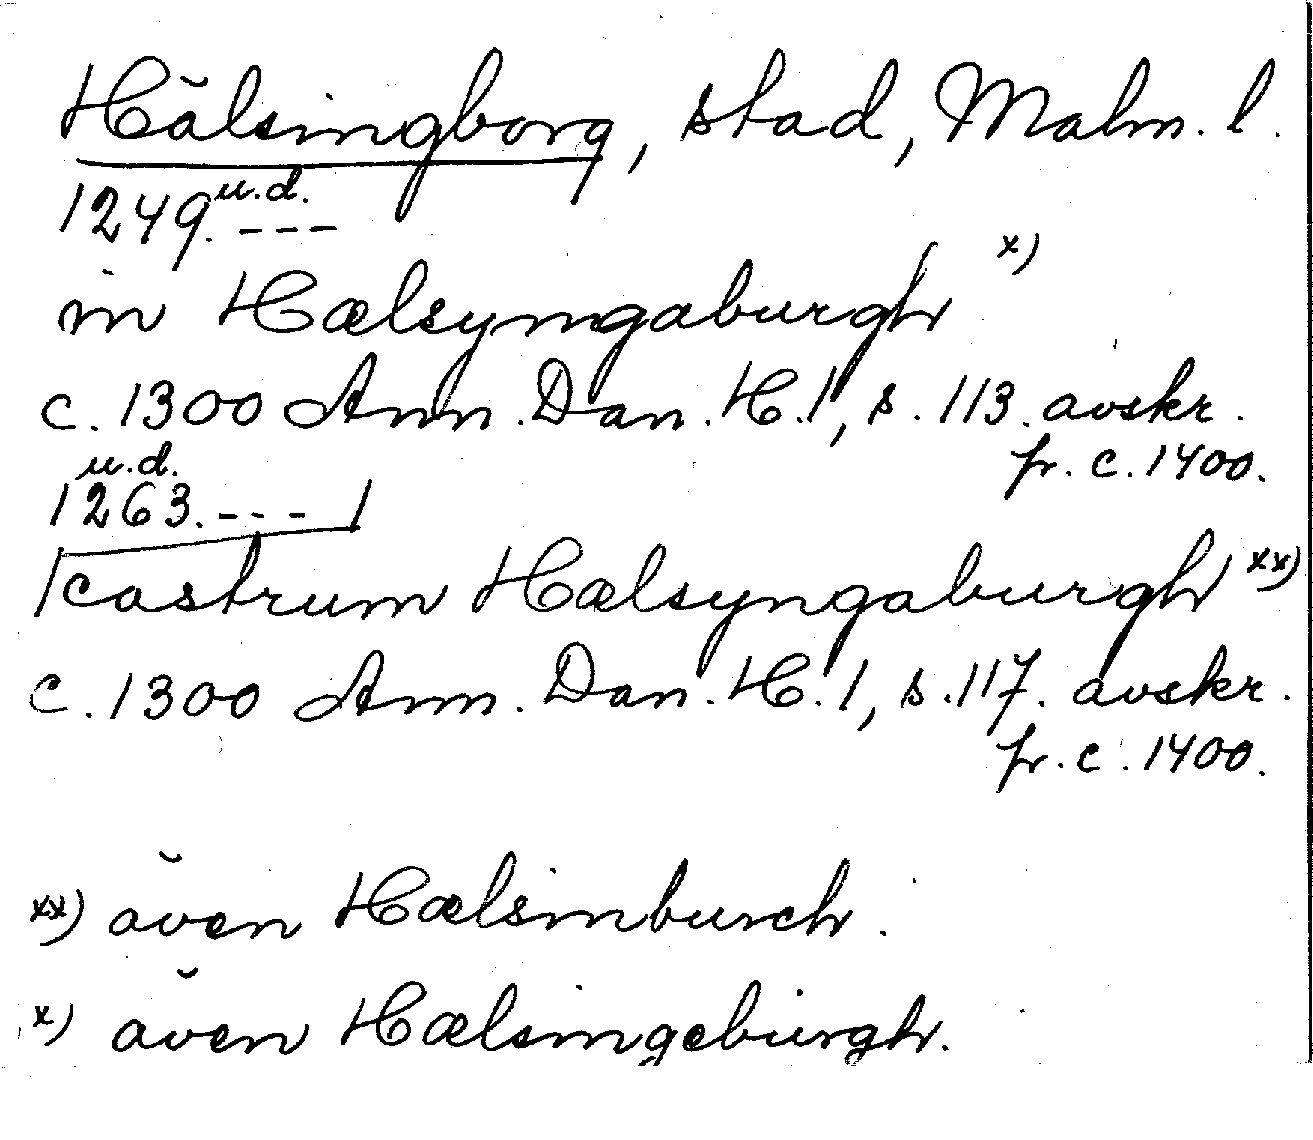 Hälsingborg, stad, Malm. l.
1249. u.d. ---
in Hælsyngaburgh x)
c. 1300 Ann. Dan. H. 1, s. 113. avskr.
fr. c. 1400.
u.d.
1263. --- /
/castrum Hælsyngaburgh xx)
c. 1300 Ann. Dan. H. 1, s. 117. avskr.
fr. c. 1400.
xx) även Hælsinburch.
x) även Hælsingeburgh.